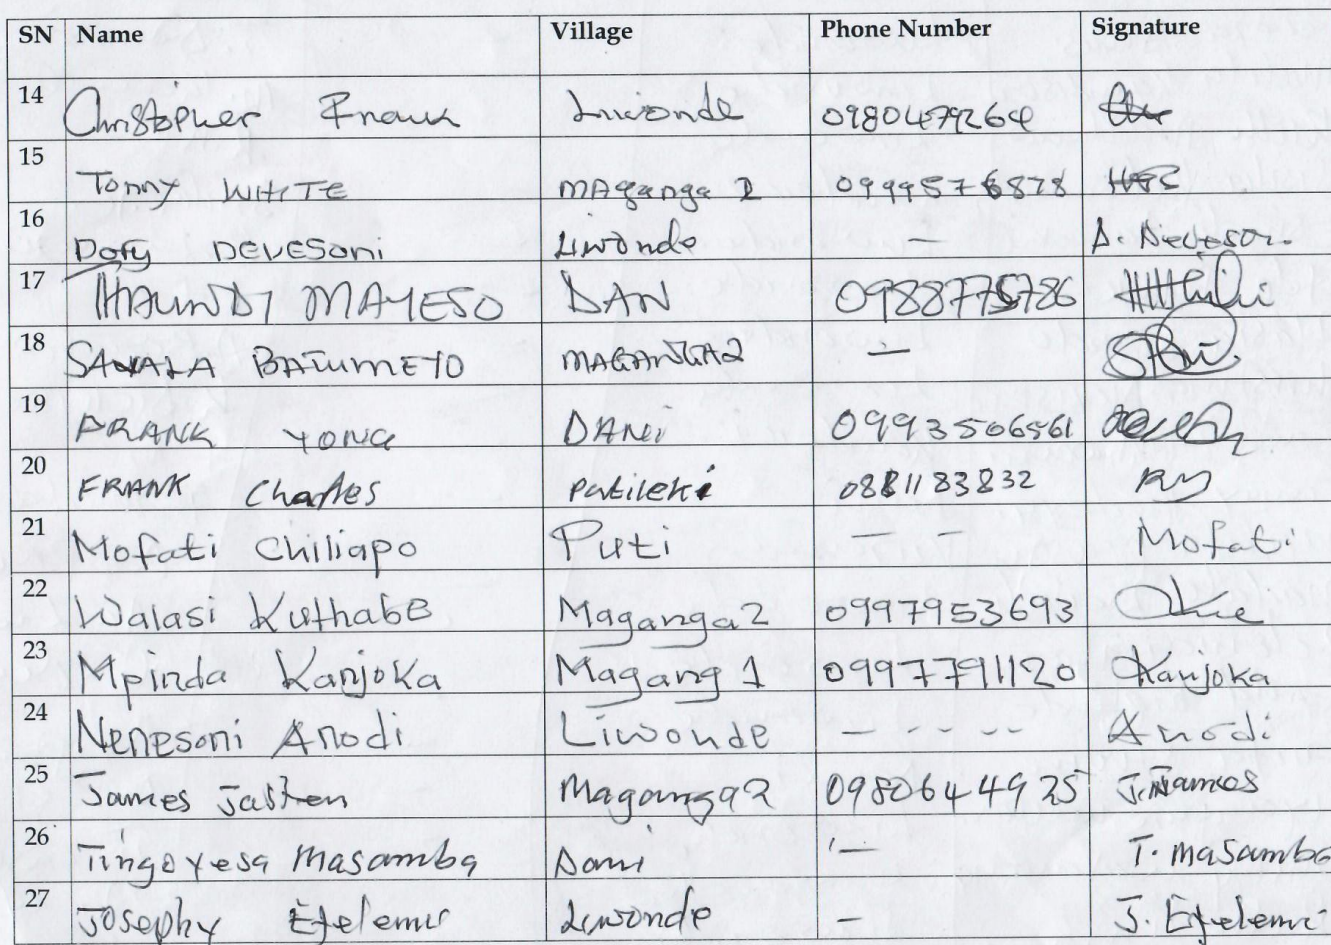 SN Name Village Phone Number Signature
14 Christopher Frank Liwonde 0980479264
15 Tonny WHITE MAganga 2 0999576878
16 Dory DEVESoni Liwonde — D. Nedeson
17 HAUNDI MAYESO DAN 0988775786
18 SAWALA BATUMEYO MAGANGA2 —
19 FRANK YONA DANi 0993506561
20 FRANK Charles Patileki 0881183832
21 Mofati Chiliapo Puti — — Mofati
22 Walasi Kuthabe Maganga 2 0997953693
23 Mpinda Kanjoka Magang 1 0997791120 Kanjoka
24 Nenesoni Anodi Liwonde - - - - - Anodi
25 James Jasten Maganga2 0980644925 J.James
26 Tingoyesa Masamba Dani — T. Masamba
27 Josephy Efelemu Liwonde — J. Efelemu